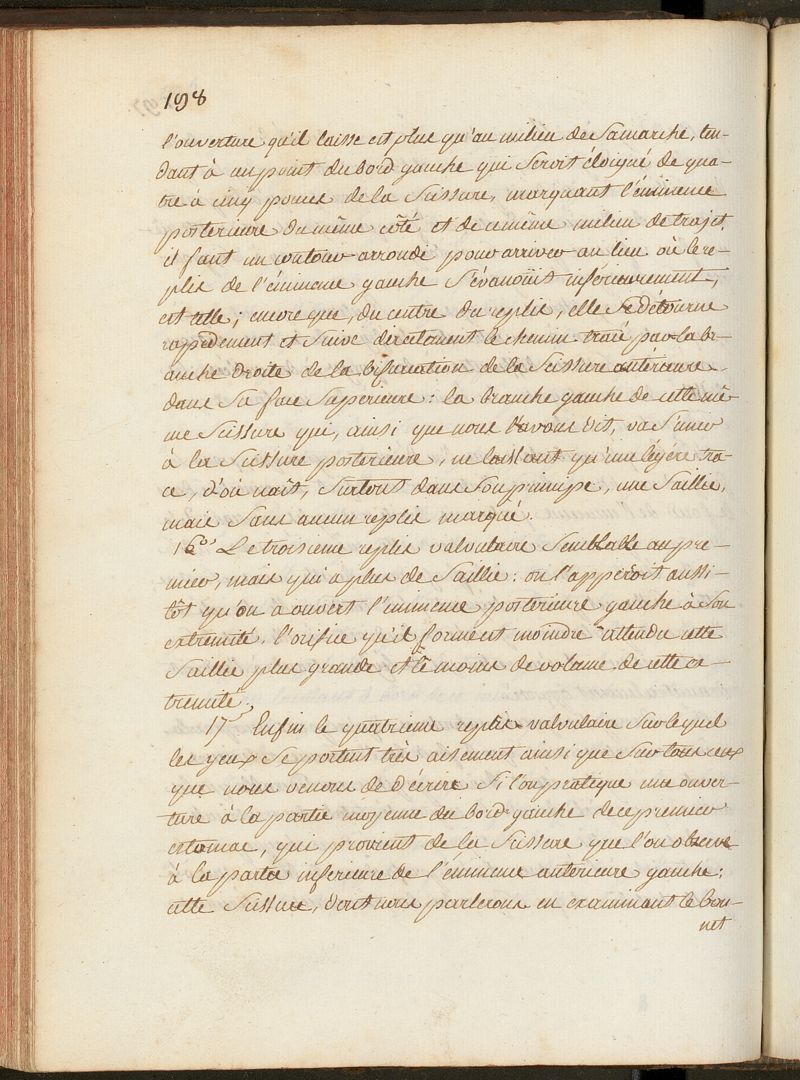 198
l'ouverture qu'il laisse est plus qu'au milieu de Sa marche, ten-
dant à un point du bord gauche qui Seroit éloigné de qua-
tre à cinq pouces de la Scissure, marquant l'éminence
posterieure du même côté et de ce même milieu de trajet,
il faut un contour arrondi pour arriver au lieu où le re-
plis de l'éminence gauche S'évanoüit inférieurement,
est telle; encore que, du centre du replis, elle Se détourne
rapidement et Suive directement le chemin tracé par la br-
anche droite de la bifurcation de la Scissure anterieure
dans Sa face Superieure: la branche gauche de cette mê-
me Scissure qui, ainsi que nous l'avons dit, va S'unir
à la Scissure posterieure, ne laissant qu'une légére tra-
ce, d'où naît, Surtout dans Son principe, une Saillie,
mais Sans aucun replis marqué.
16° Le troisieme replis valvulaire Semblable au pre-
mier, mais qui a plus de Saillie: on l'apperçoit aussi-
tôt qu'on a ouvert l'éminence posterieure gauche à Son
extremité. l'orifice qu'il forme est moindre attendu cette
Saillie plus grande et le moins de volume de cette ex-
tremité.
17° Enfin le quatrieme replis valvulaire Sur lequel
les yeux Se portent très aisement ainsi que Sur tous ceux
que nous venons de décrire Si l'on pratique une ouver-
ture à la partie moyenne du bord gauche de ce premier
estomac, qui provient de la Scissure que l'on observe
à la partie inferieure de l'éminence anterieure gauche;
cette Scissure, dont nous parlerons en examinant le bon-
net